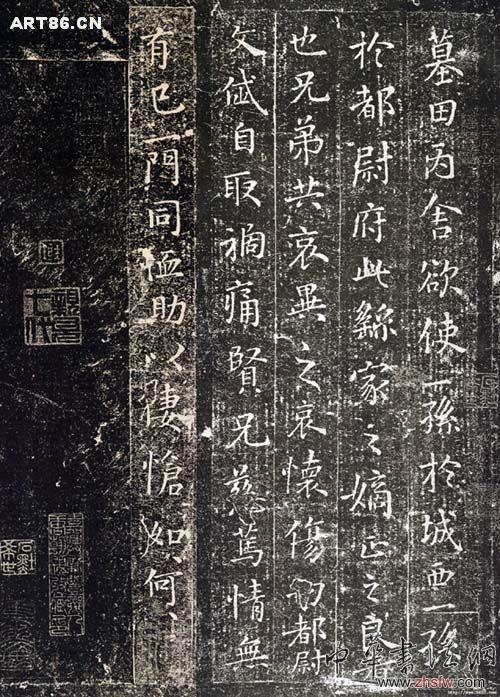 ART86.CN
墓田丙舍欲使一孫於城西一孫
於都尉府此繇家之嫡正之良者
也兄弟共哀異之哀懷傷切都尉
文岱自取禍痛賢兄慈篤情無
有已一門同恤助以悽愴如何〻
中華書法網
www.zhsfw.com